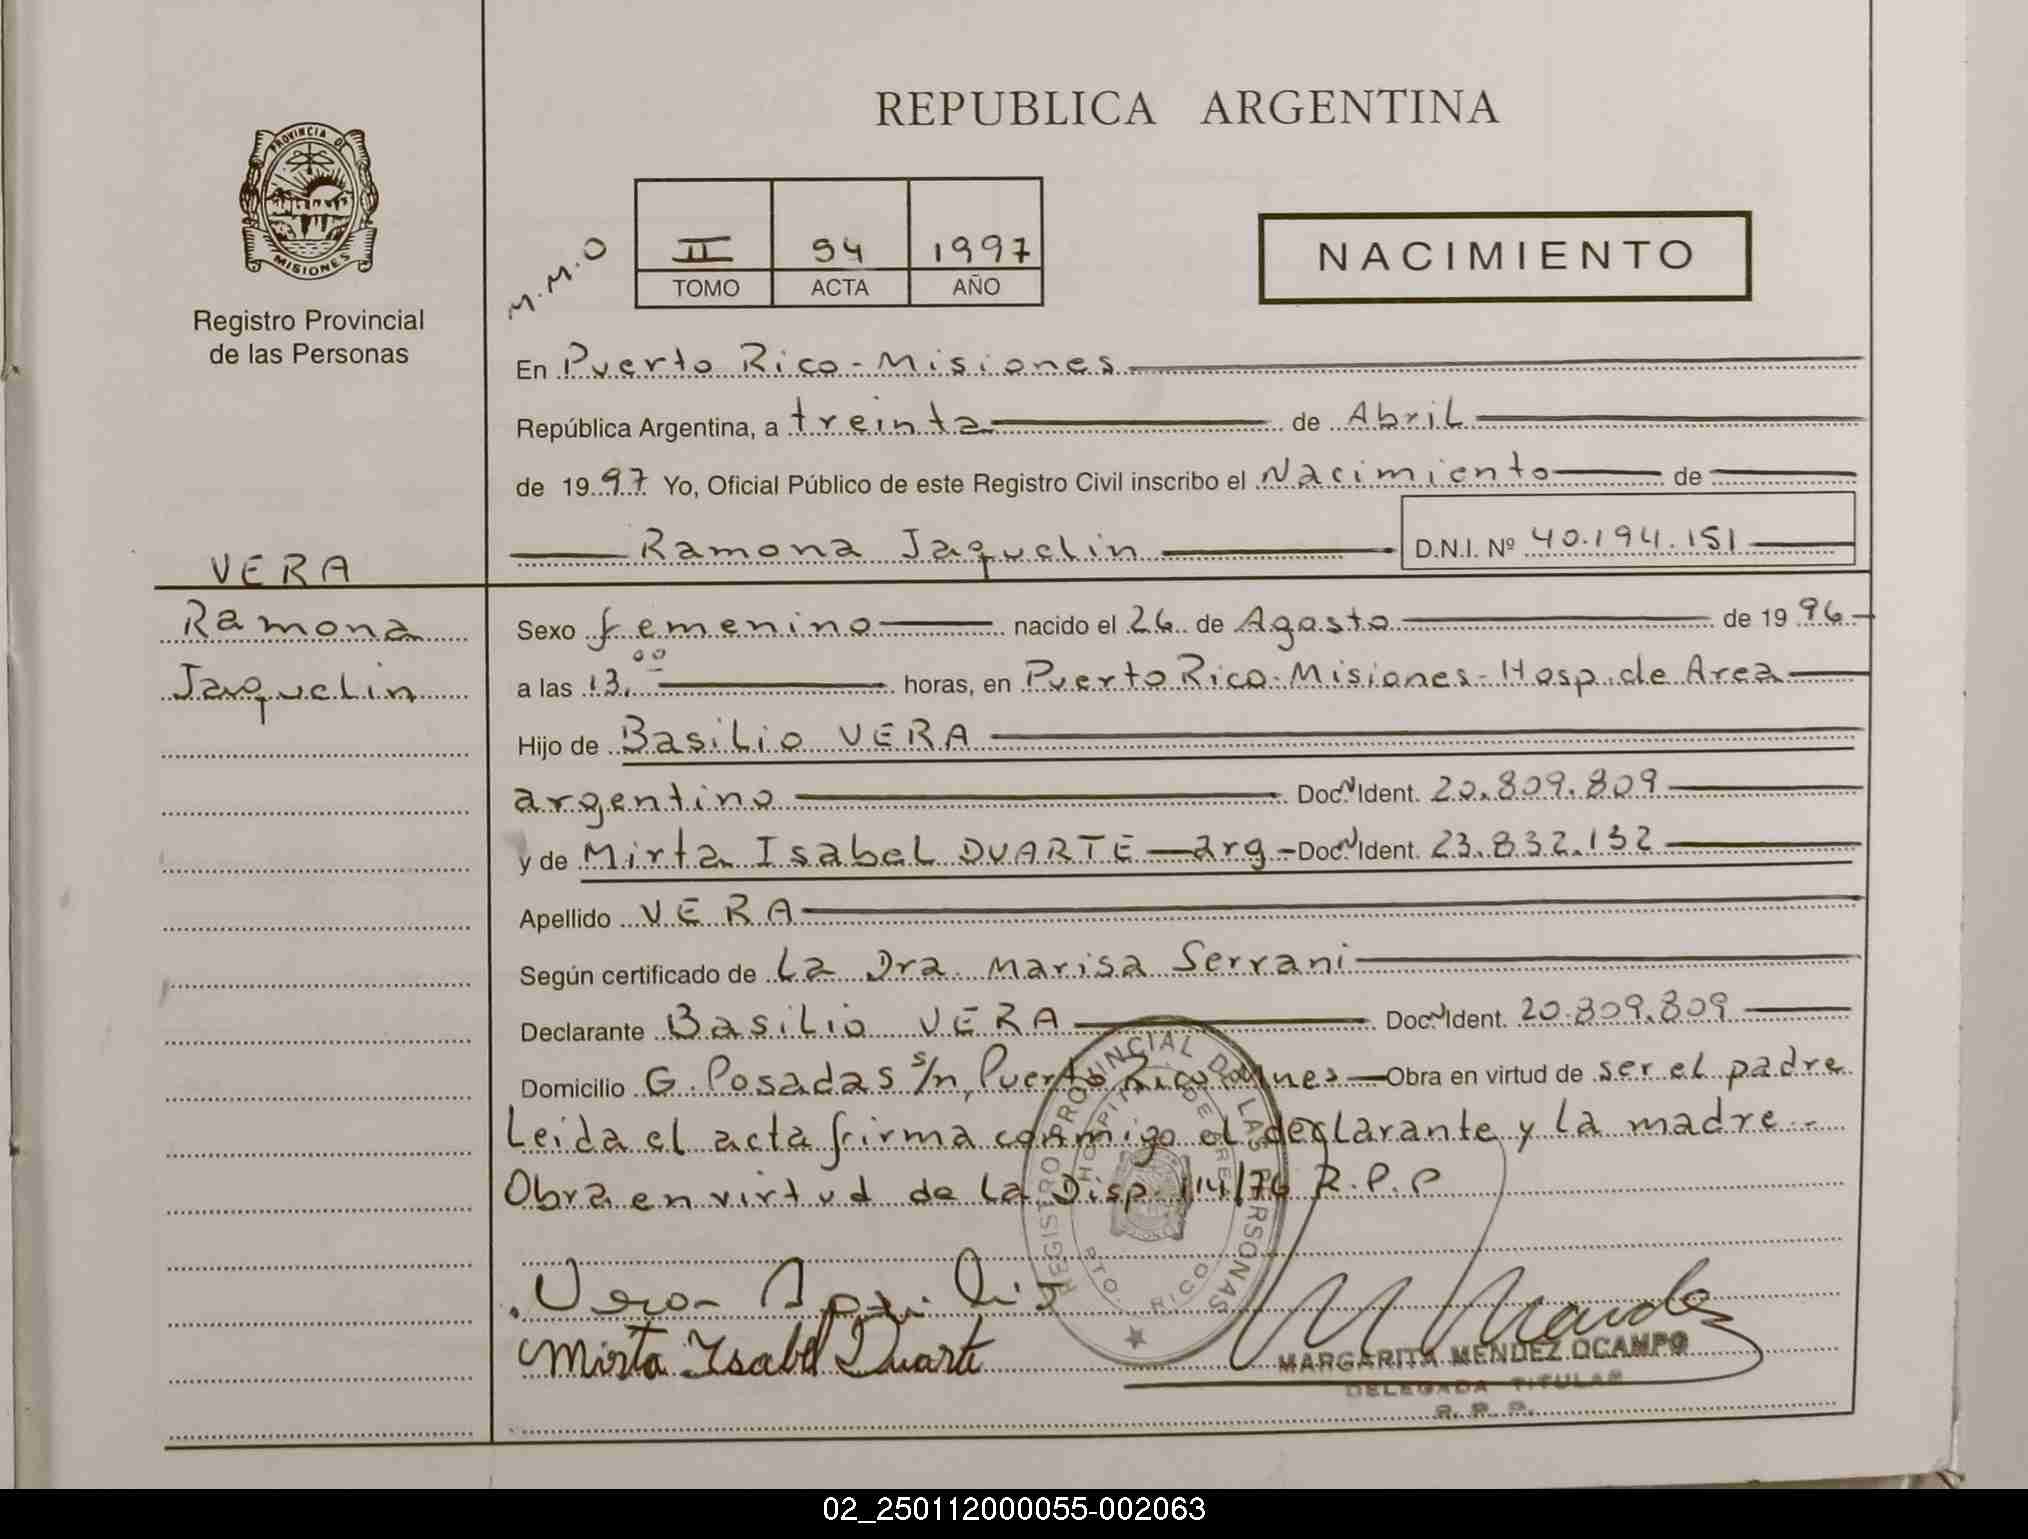 REPUBLICA ARGENTINA
PROVINCIA DE
MISIONES
Registro Provincial
de las Personas
M.M.O
II 94 1997
TOMO ACTA AÑO
NACIMIENTO
En Puerto Rico - Misiones
República Argentina, a treinta de Abril
de 1997 Yo, Oficial Público de este Registro Civil inscribo el Nacimiento de
Ramona Jaquelin D.N.I. Nº 40.194.151
VERA
Ramona
Jaquelin
Sexo femenino nacido el 26 de Agosto de 1996
a las 13,00 horas, en Puerto Rico - Misiones - Hosp. de Area
Hijo de Basilio VERA
argentino Doc. N Ident. 20.809.809
y de Mirta Isabel DUARTE - arg - Doc. N Ident. 23.832.132
Apellido VERA
Según certificado de La Dra. Marisa Serrani
Declarante Basilio VERA Doc. N Ident. 20.809.809
Domicilio G. Posadas s/n, Puerto Rico Mnes - Obra en virtud de ser el padre
Leida el acta firma conmigo el declarante y La madre.-
Obra en virtud de La Disp. 114/76 R.P.P
REGISTRO PROVINCIAL DE LAS PERSONAS
HOSPITAL DE AREA
PTO. RICO
Vera
Mirta Isabel Duarte
M Mendez
MARGARITA MENDEZ OCAMPO
DELEGADA TITULAR
R. P. P.
02_250112000055-002063